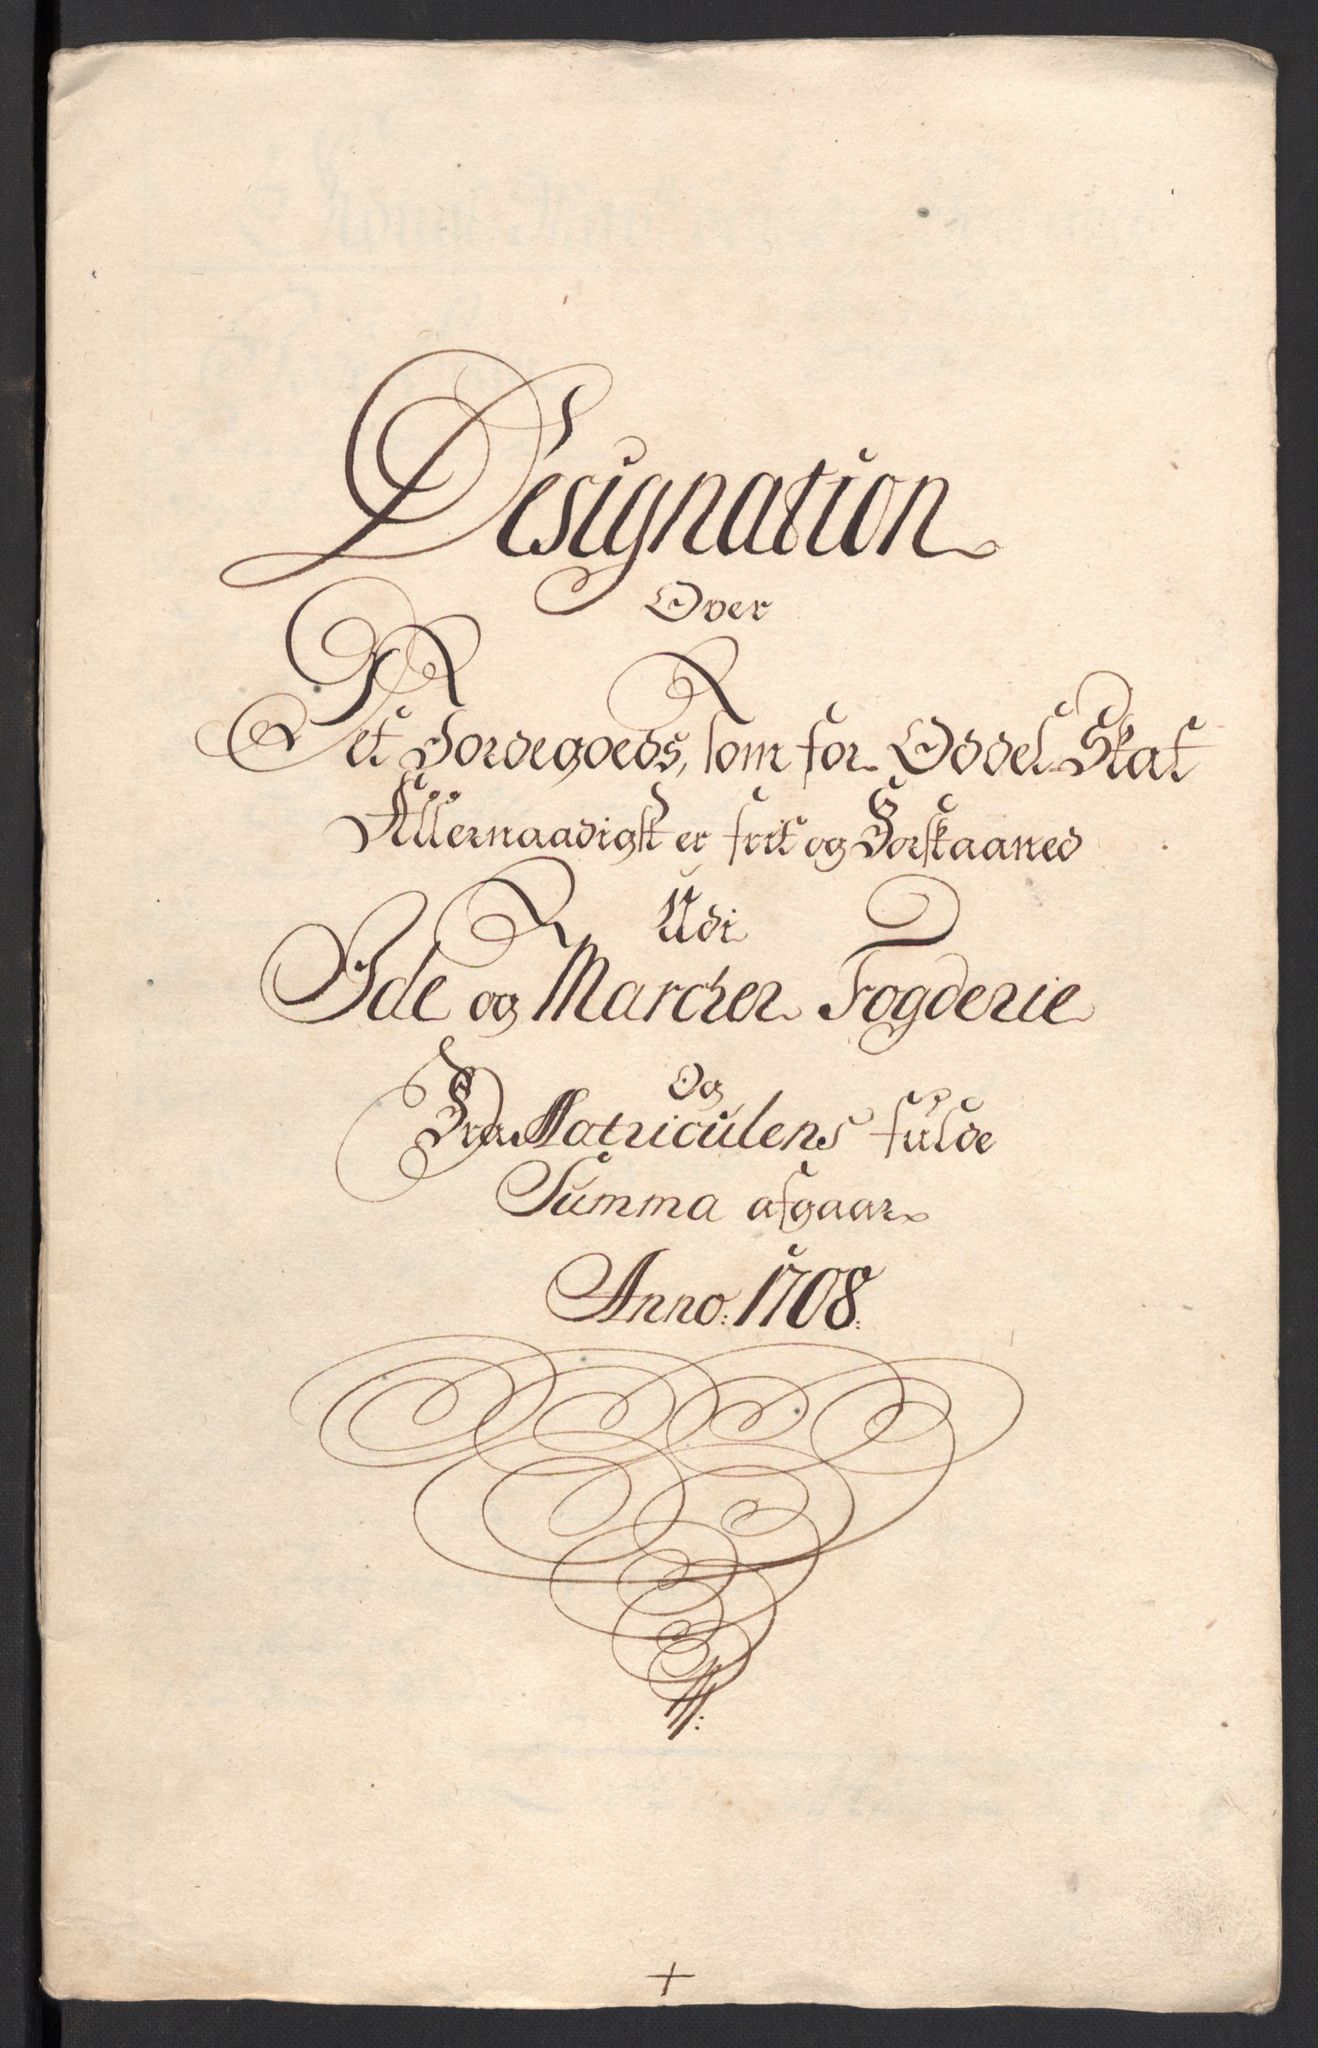 Designation
Over
Det Jordegoeds, som for Oddel Skat
Allernaadigst er frit og Forskaaned
Udi
Ide og Marcher Fogderie
Og
Fra Matriculens fulde
Summa afgaar
Anno: 1708: